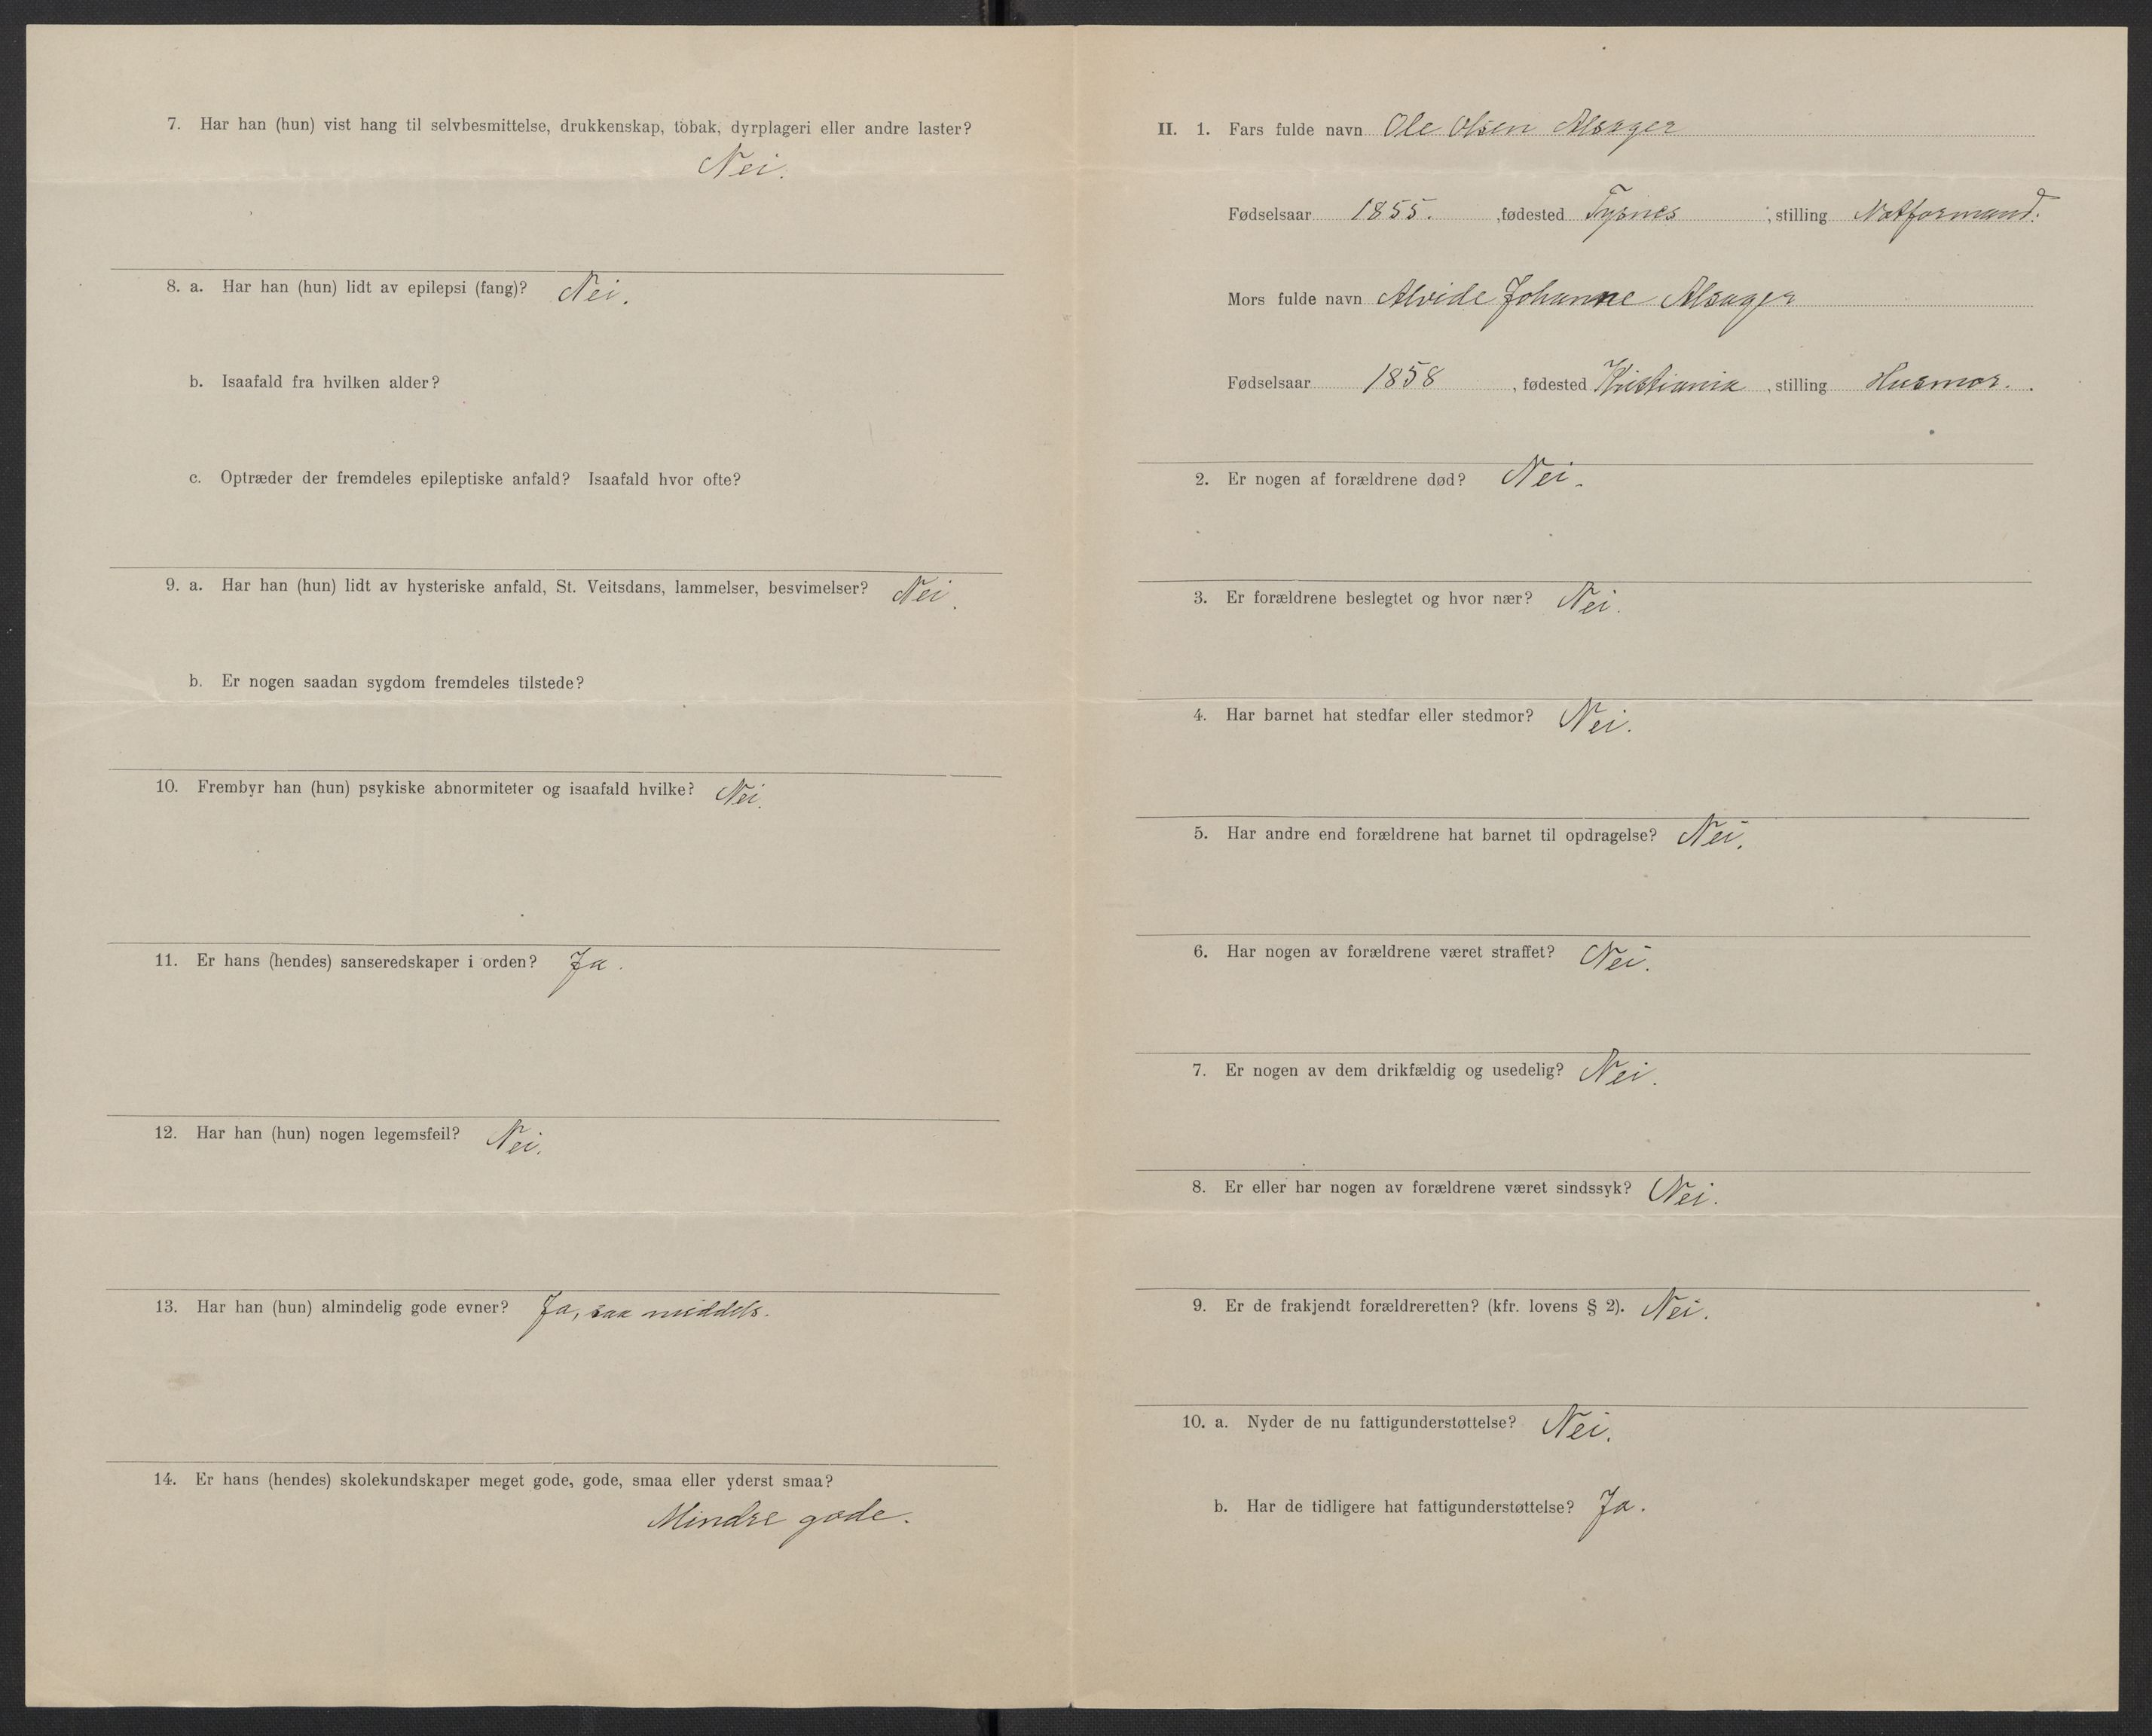 7. Har han (hun) vist hang til selvbesmittelse, drukkenskap, tobak, dyrplageri eller andre laster?
Nei.
8. a. Har han (hun) lidt av epilepsi (fang)? Nei.
b. Isaafald fra hvilken alder?
c. Optræder der fremdeles epileptiske anfald? Isaafald hvor ofte?
9. a. Har han (hun) lidt av hysteriske anfald, St. Veitsdans, lammelser, besvimelser? Nei.
b. Er nogen saadan sygdom fremdeles tilstede?
10. Frembyr han (hun) psykiske abnormiteter og isaafald hvilke? Nei.
11. Er hans (hendes) sanseredskaper i orden? Ja.
12. Har han (hun) nogen legemsfeil? Nei.
13. Har han (hun) almindelig gode evner? Ja, saa middels.
14. Er hans (hendes) skolekundskaper meget gode, gode, smaa eller yderst smaa?
Mindre gode.
II. 1. Fars fulde navn Ole Olsen Alsager
Fødselsaar 1855. , fødested Tysnes , stilling Notformand.
Mors fulde navn Alvide Johanne Alsager
Fødselsaar 1858 , fødested Kristiania , stilling Husmor.
2. Er nogen af forældrene død? Nei.
3. Er forældrene beslegtet og hvor nær? Nei.
4. Har barnet hat stedfar eller stedmor? Nei.
5. Har andre end forældrene hat barnet til opdragelse? Nei.
6. Har nogen av forældrene været straffet? Nei.
7. Er nogen av dem drikfældig og usedelig? Nei.
8. Er eller har nogen av forældrene været sindssyk? Nei.
9. Er de frakjendt forældreretten? (kfr. lovens § 2). Nei.
10. a. Nyder de nu fattigunderstøttelse? Nei.
b. Har de tidligere hat fattigunderstøttelse? Ja.